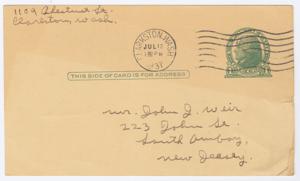 1109 Chestnut St.
Clarkston, Wash.
CLARKSTON, WASH.
JUL 13
PM
1931
THIS SIDE OF CARD IS FOR ADDRESS
Mr. John J. Weir
223 John St.
South Amboy,
New Jersey.